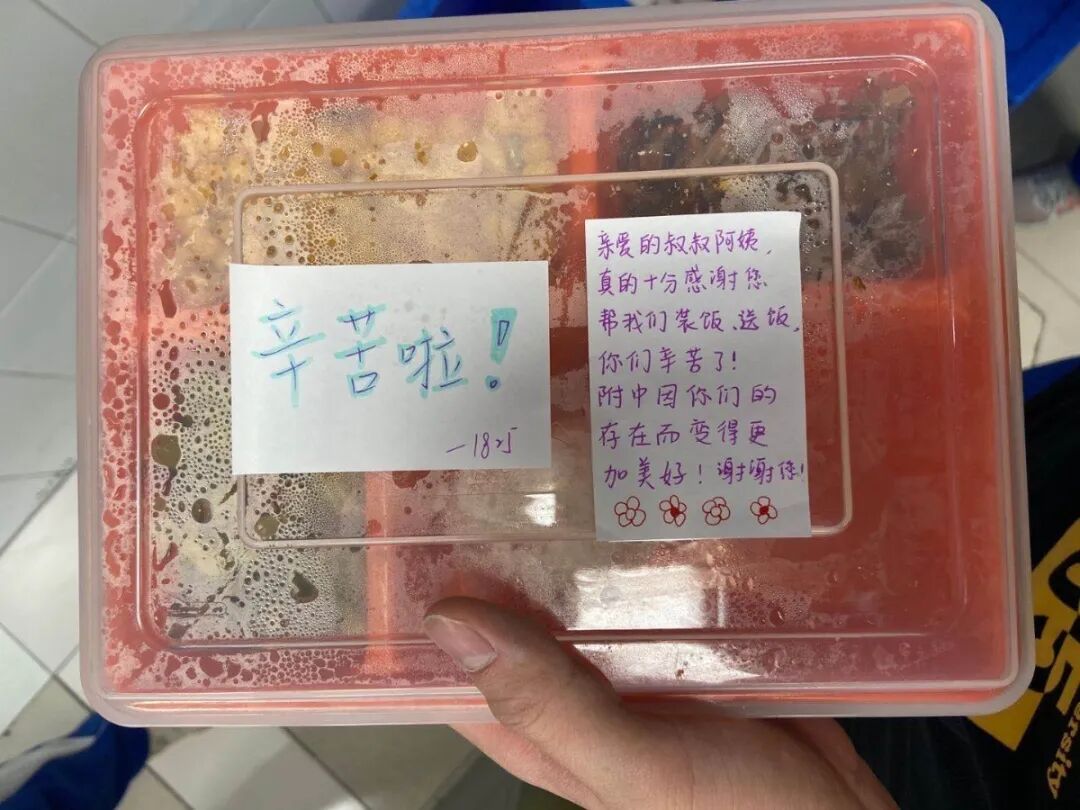 辛苦啦！
—1825
亲爱的叔叔阿姨，
真的十分感谢您
帮我们装饭、送饭，
你们辛苦了！
附中因你们的
存在而变得更
加美好！谢谢您！
ersity